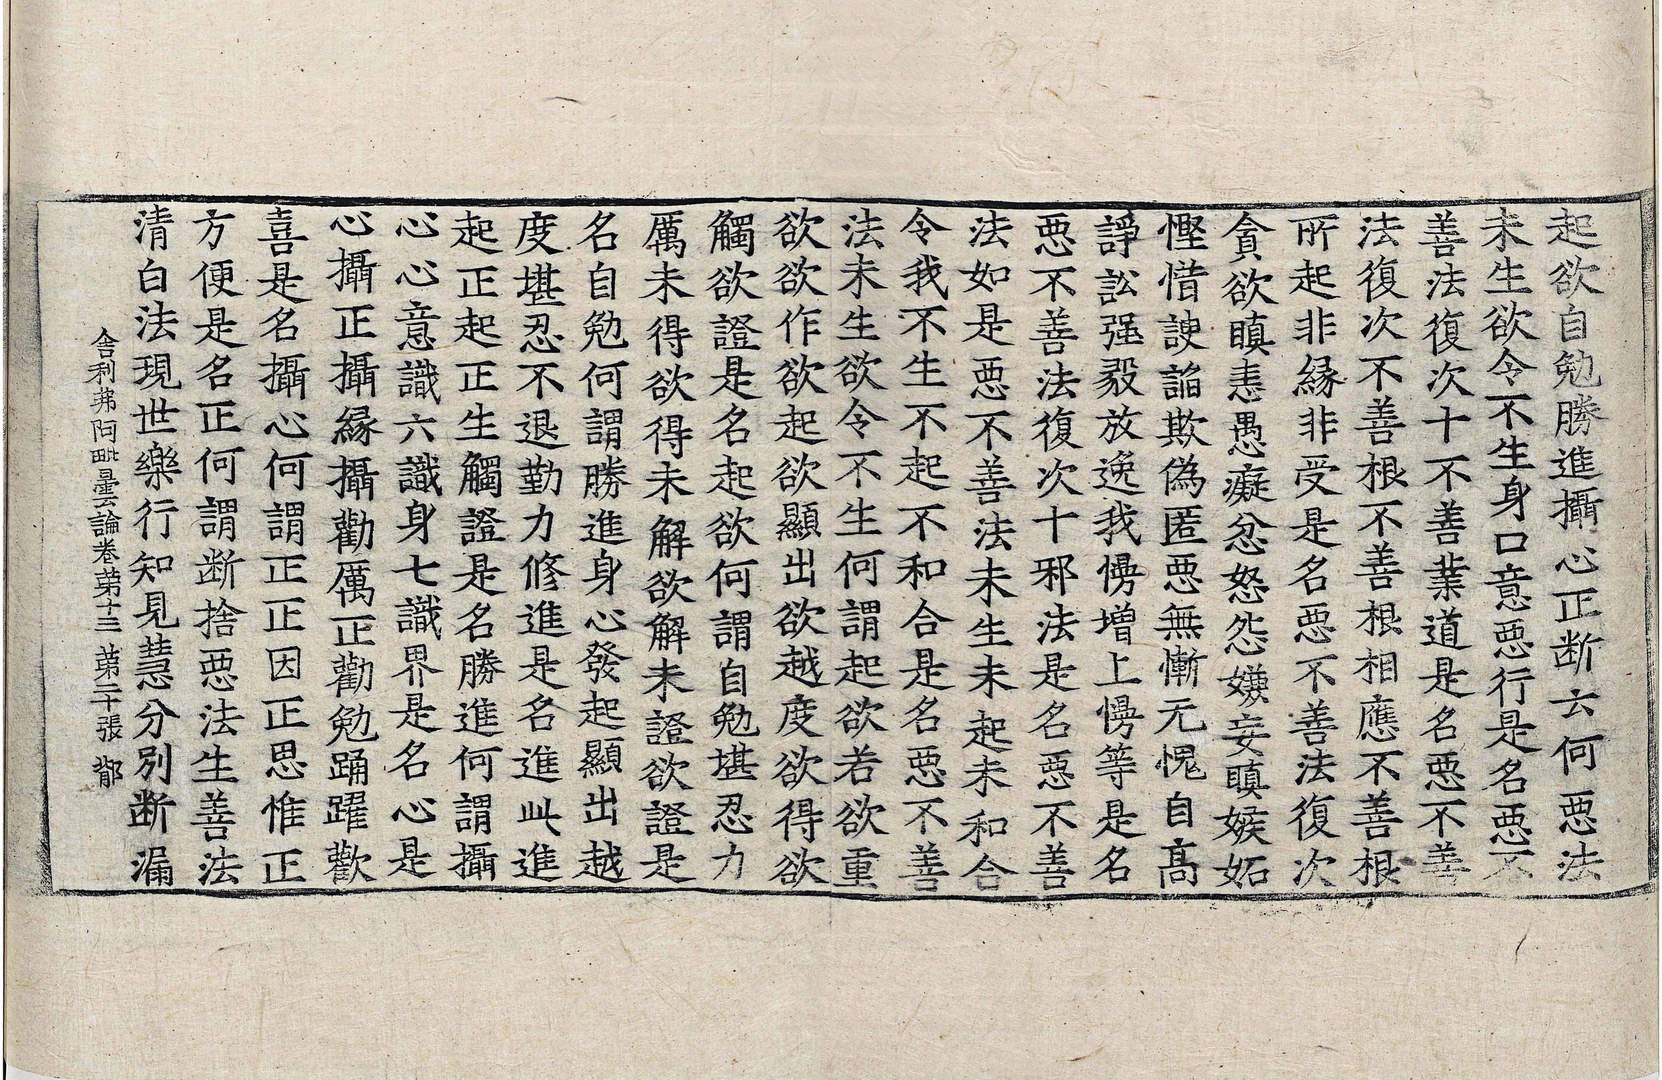 起欲自勉勝進攝心正断云何惡法
未生欲令不生身口意惡行是名惡不
善法復次十不善業道是名惡不善
法復次不善根不善根相應不善根
所起非縁非受是名惡不善法復次
貪欲瞋恚愚癡忿怒怨嫌妄瞋嫉妬
慳惜諛諂欺偽匿惡無慚无愧自髙
諍訟强毅放逸我慢增上慢等是名
惡不善法復次十邪法是名惡不善
法如是惡不善法未生未起未和合
令我不生不起不和合是名惡不善
法未生欲令不生何謂起欲若欲重
欲欲作欲起欲顯出欲越度欲得欲
觸欲證是名起欲何謂自勉堪忍力
厲未得欲得未解欲解未證欲證是
名自勉何謂勝進身心發起顯出越
度堪忍不退勤力修進是名進此進
起正起正生觸證是名勝進何謂攝
心心意識六識身七識界是名心是
心攝正攝縁攝勸厲正勸勉踊躍歡
喜是名攝心何謂正正因正思惟正
方便是名正何謂断捨惡法生善法
清白法現世樂行知見慧分別断漏
舍利弗阿毗曇論卷苐十三 苐二十張 鄁